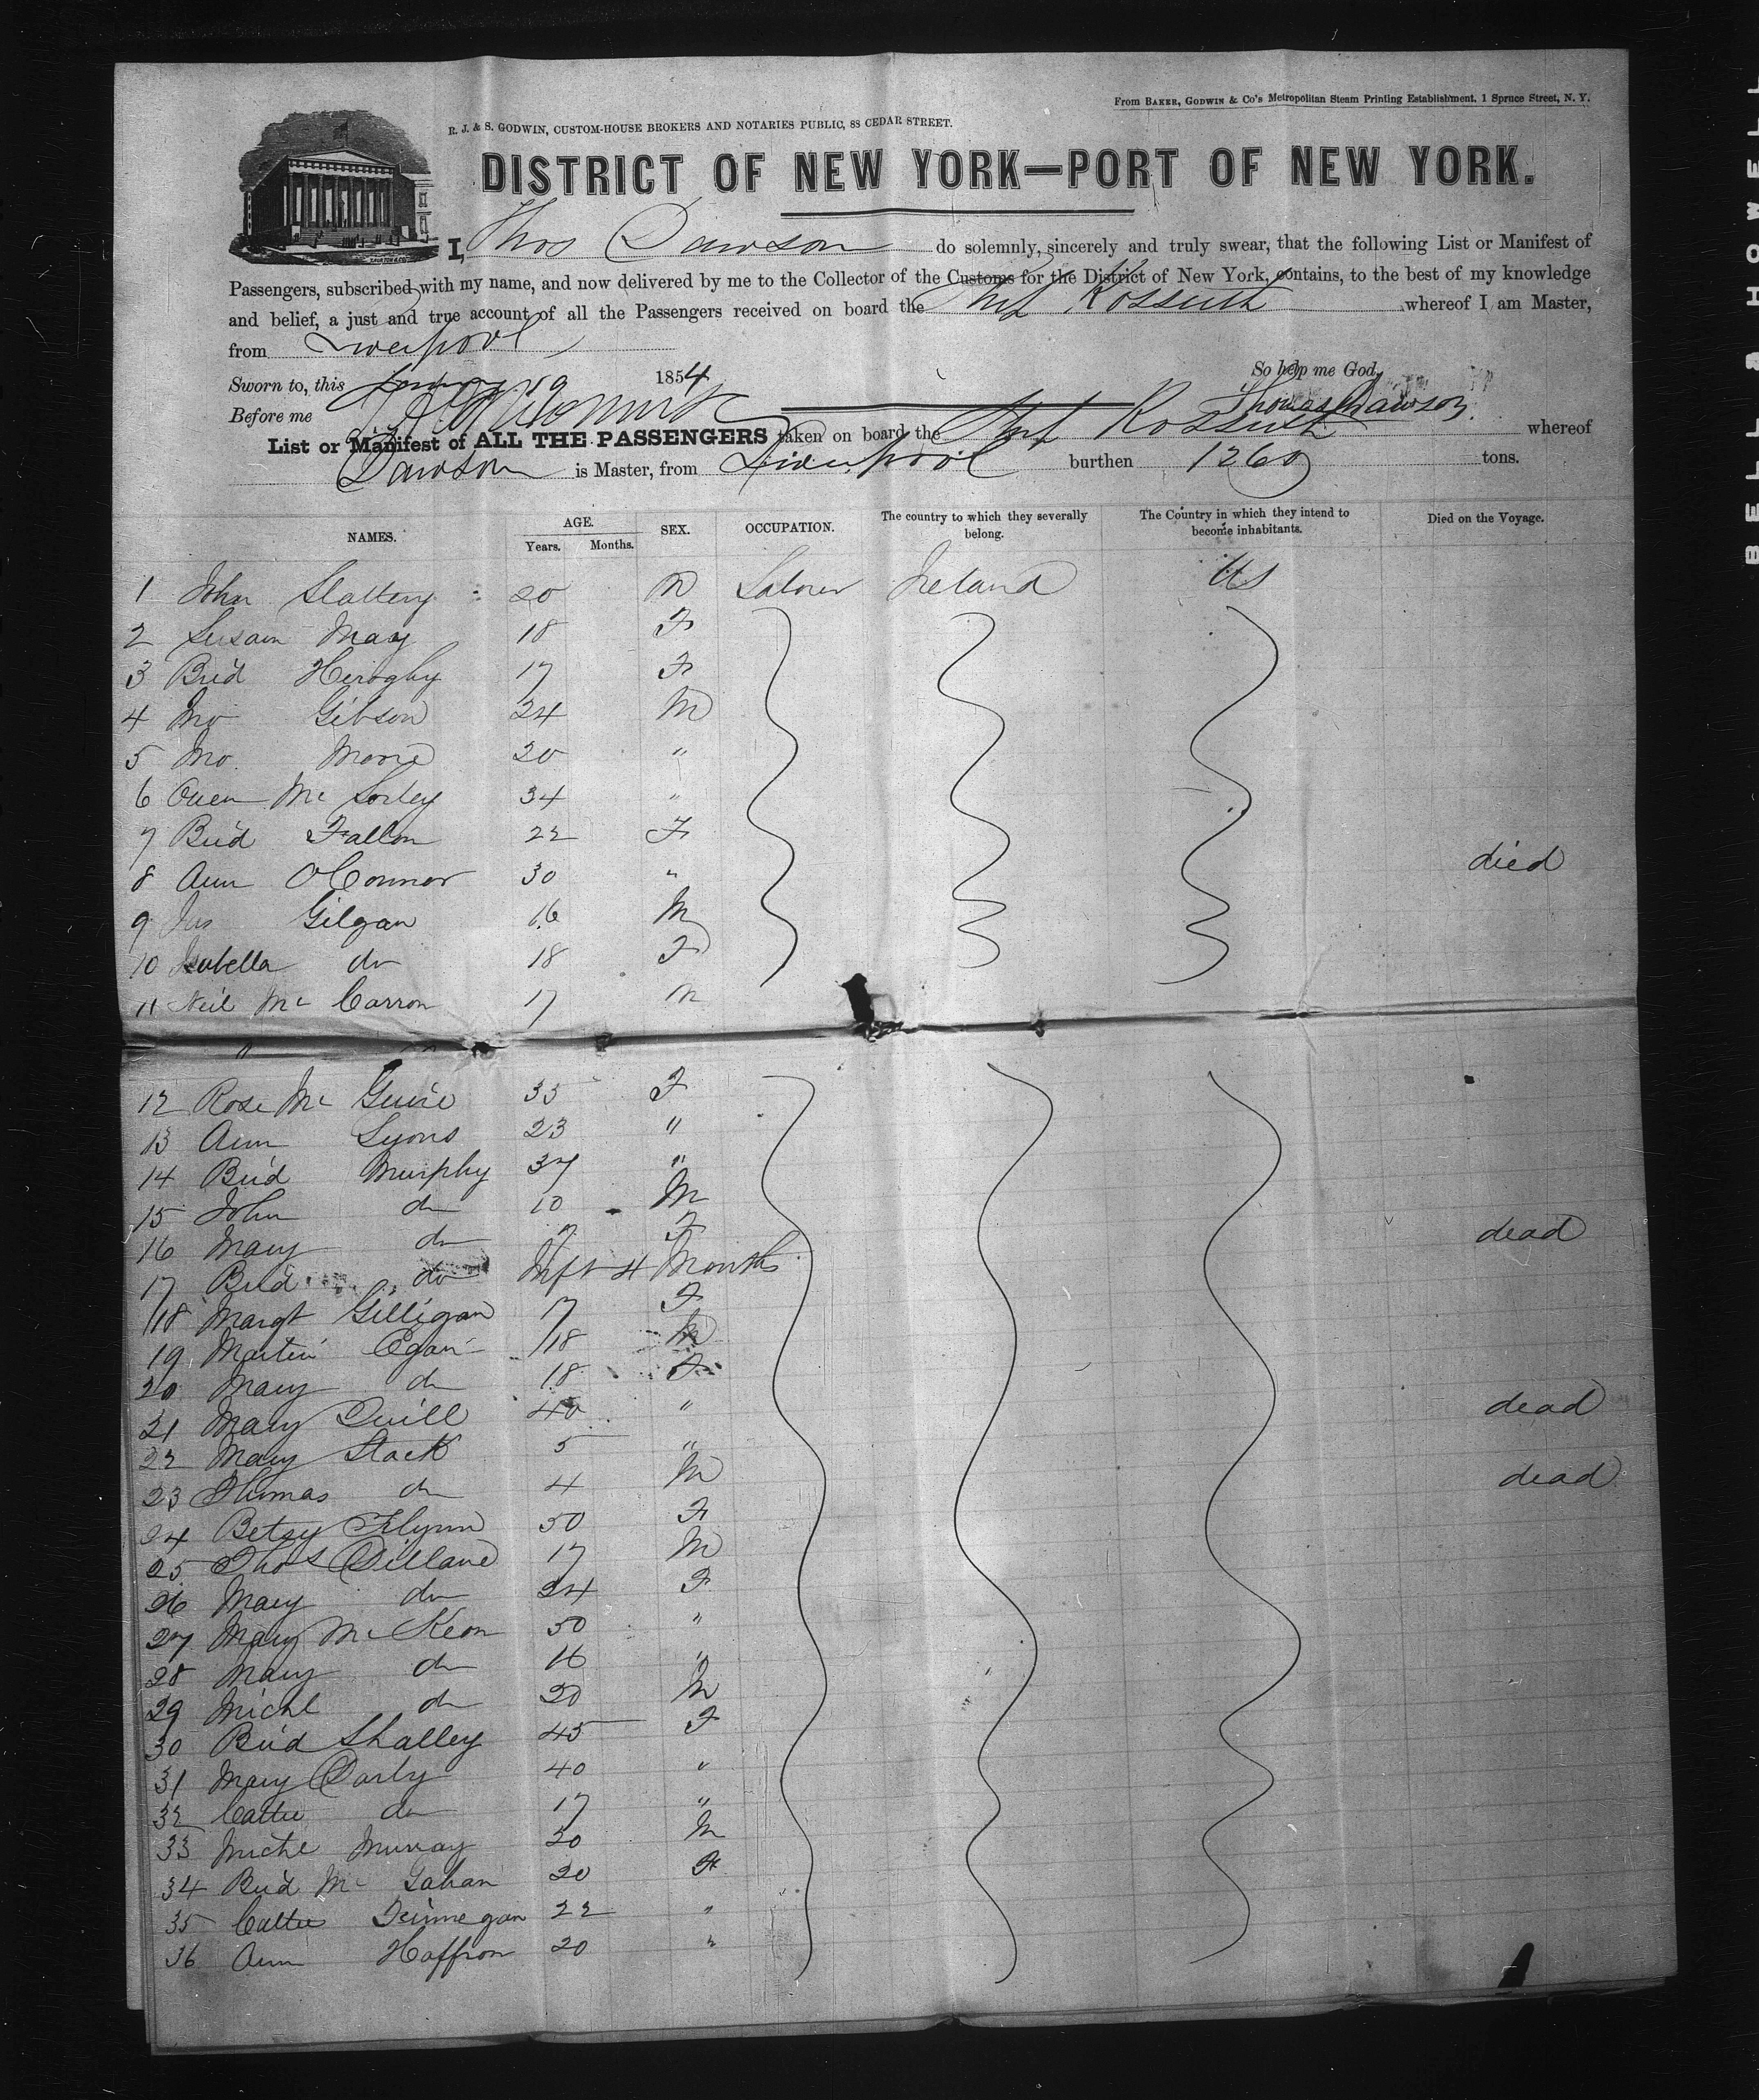 From BAKER, GODWIN & Co's Metropolitan Steam Printing Establishment, 1 Spruce Street, N. Y.
R. J. & S. GODWIN, CUSTOM-HOUSE BROKERS AND NOTARIES PUBLIC, 88 CEDAR STREET.
DISTRICT OF NEW YORK—PORT OF NEW YORK.
I, Thos Dawson do solemnly, sincerely and truly swear, that the following List or Manifest of
Passengers, subscribed with my name, and now delivered by me to the Collector of the Customs for the District of New York, contains, to the best of my knowledge
and belief, a just and true account of all the Passengers received on board the Ship Kossuth whereof I am Master,
from Liverpool
So help me God,
Sworn to, this January 19 1854
Thomas Dawson
Before me
List or Manifest of ALL THE PASSENGERS taken on board the Ship Kossuth whereof
Dawson is Master, from Liverpool burthen 1260 tons.
NAMES. AGE. Years. Months. SEX. OCCUPATION. The country to which they severally belong. The Country in which they intend to become inhabitants. Died on the Voyage.
1 John Slattery 20 M Laborer Ireland US
2 Susan May 18 F
3 Brid 17 F
4 Jno Gibson 34 M
5 Jno Moore 20 "
6 Owen Mc Sorley 34 "
7 Brid Fallon 22 F
8 Ann O'Connor 30 " died
9 Jas Gilgan 16 M
10 Isabella do 18 F
11 Neil Mc Carron 17 M
12 Rose Mc Guire 35 F
13 Ann Lyons 23 "
14 Brid Murphy 37 "
15 John do 10 M
16 Mary do 7 F dead
17 Brid do Inft 4 Months
18 Margt Gilligan 17 F
19 Martin Egan 18 M
20 Mary do 18 F
21 Mary Quill 40 " dead
22 Mary Stack 5 "
23 Thomas do 4 M dead
24 Betsy Flynn 50 F
25 Thos Dillane 17 M
26 Mary do 24 F
27 Mary Mc Keon 50 "
28 Mary do 16 "
29 Michl do 20 M
30 Brid Shalley 45 F
31 Mary Darby 40 "
32 Cathe do 17 "
33 Michl Murray 20 M
34 Brid Mc Gahan 20 F
35 Cathe Finnegan 22 "
36 Ann Haffron 20 "
BELL & HOWELL